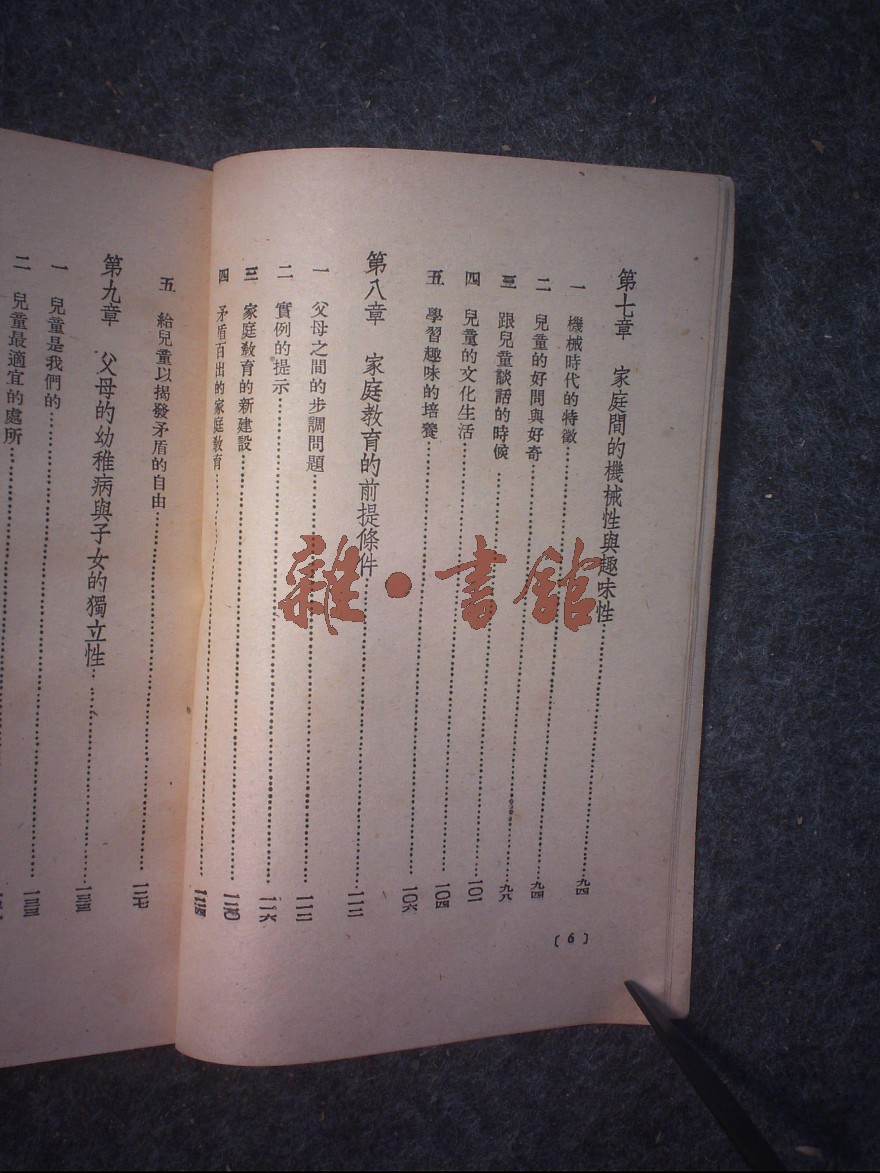 第七章 家庭間的機械性與趣味性 九四
一 機械時代的特徵 九四
二 兒童的好問與好奇 九四
三 跟兒童談話的時候 九八
四 兒童的文化生活 一〇一
五 學習趣味的培養 一〇四
第八章 家庭教育的前提條件 一一二
一 父母之間的步調問題 一一二
二 實例的提示 一一六
三 家庭教育的新建設 一二〇
四 矛盾百出的家庭教育 一二四
(6)
五 給兒童以揭發矛盾的自由 一二七
第九章 父母的幼稚病與子女的獨立性
一 兒童是我們的
二 兒童最適宜的處所
雜·書館